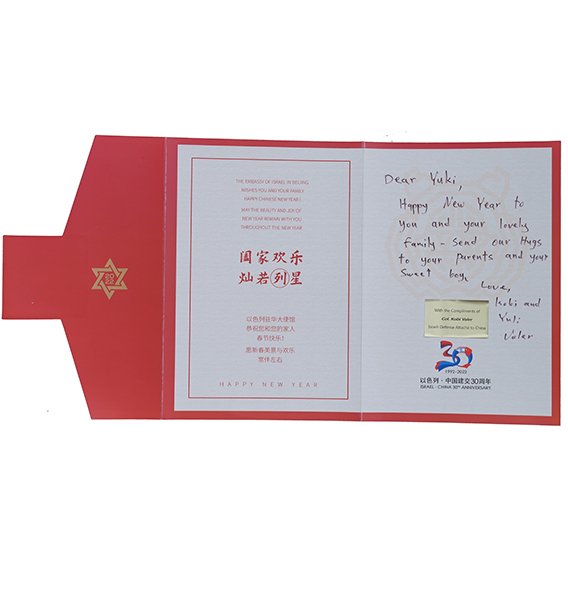 THE EMBASSY OF ISRAEL IN BEIJING
WISHES YOU AND YOUR FAMILY
HAPPY CHINESE NEW YEAR!
MAY THE BEAUTY AND JOY OF
NEW YEAR REMAIN WITH YOU
THROUGHOUT THE NEW YEAR
阖家欢乐
灿若列星
以色列驻华大使馆
恭祝您和您的家人
春节快乐!
愿新春美景与欢乐
常伴左右
HAPPY NEW YEAR
Dear Yuki,
Happy New Year to
you and your lovely
family - send our Hugs
to your parents and your
sweet boy
Love,
Kobi and
Yuli
Valer
With the Compliments of
Col. Kobi Valer
Israeli Defense Attaché to China
30
1992-2022
以色列·中国建交30周年
ISRAEL · CHINA 30TH ANNIVERSARY